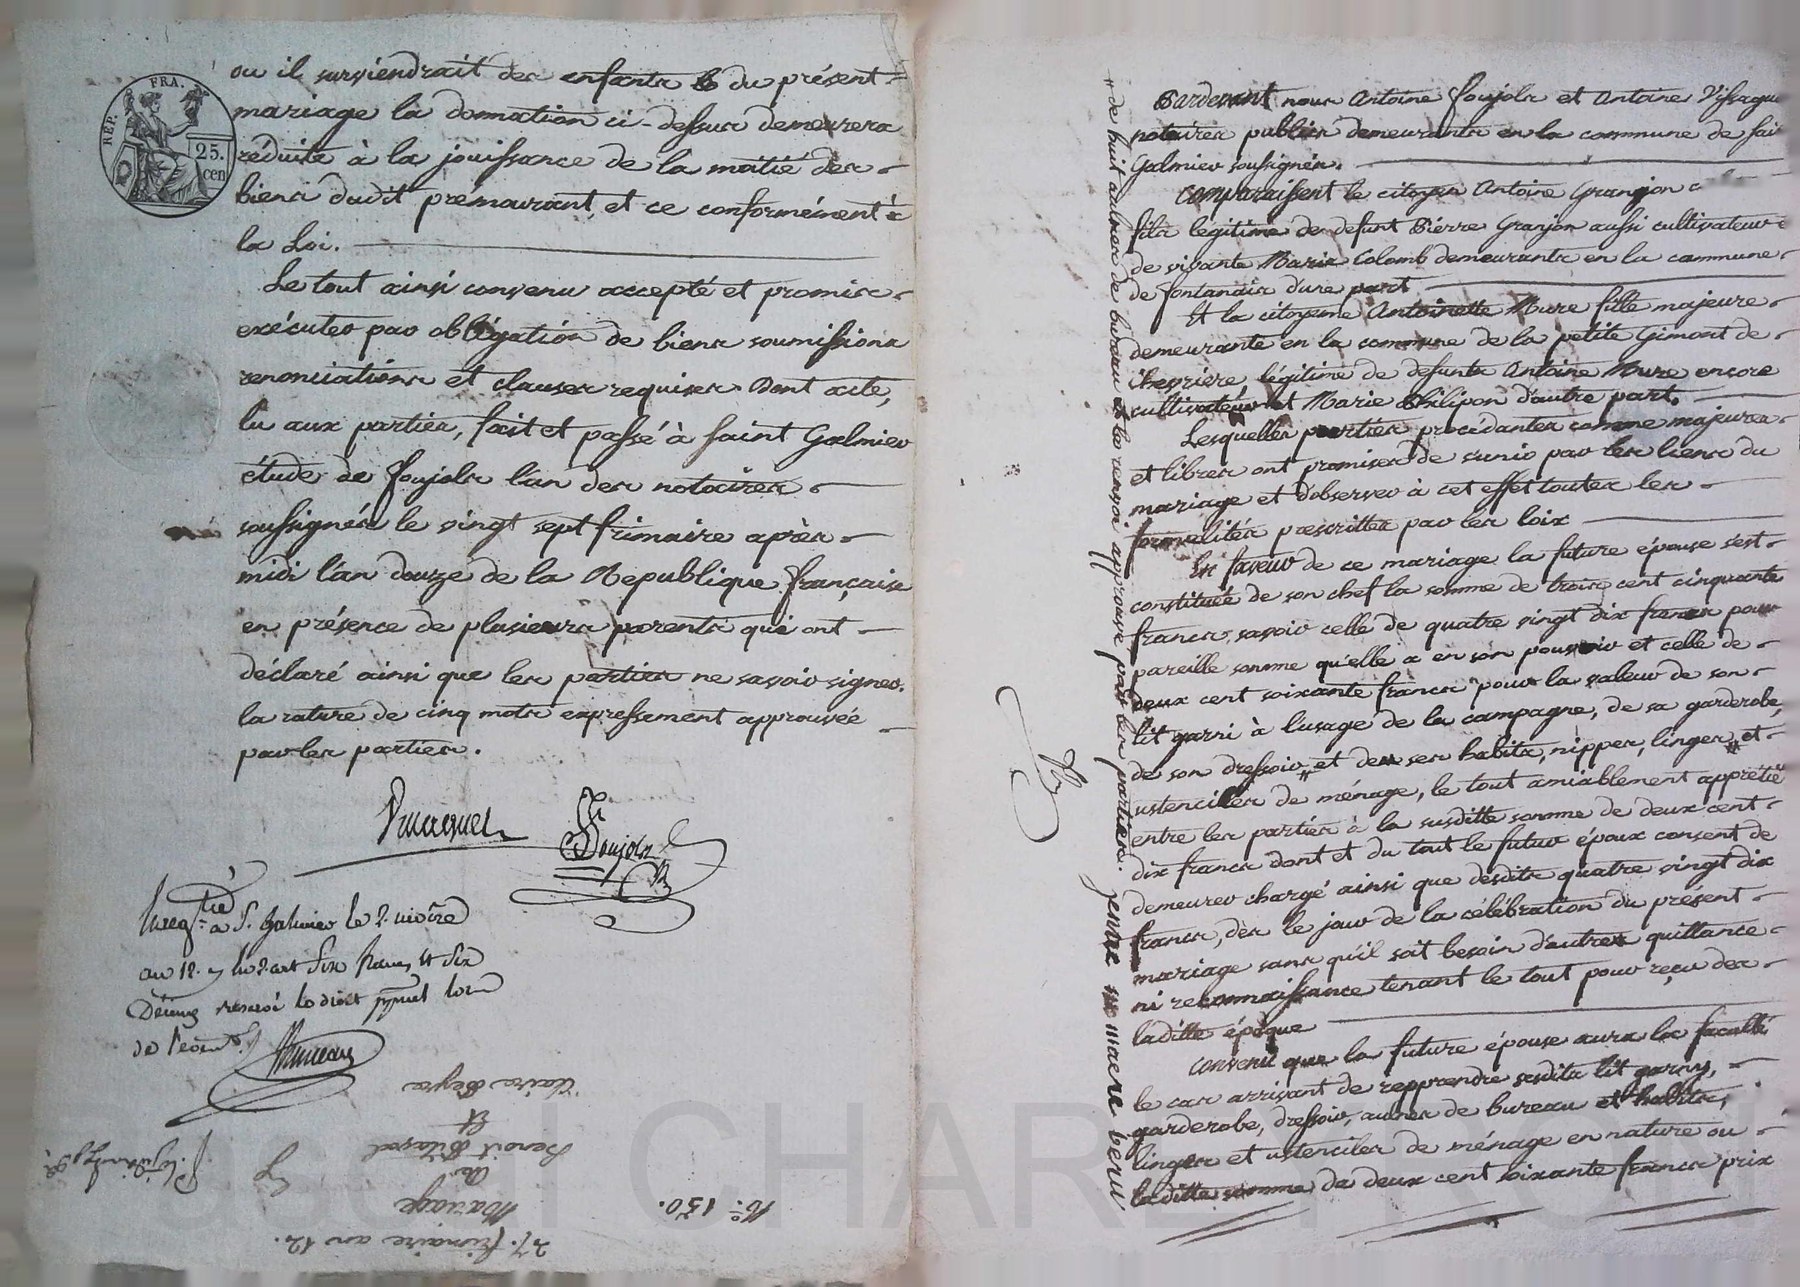 REP. FRA.
25.
cen
ou il surviendrait des enfants du présent
mariage la donnation ci-dessus demeurera
réduite à la jouissance de la moitié des
biens dudit prémourant, et ce conformément à
la Loi.
Le tout ainsi convenu accepté et promis
exécuter par obligation de biens soumissions
renonciations et clauses requises Dont acte,
lu aux parties, fait et passé à Saint Galmier
étude de Poujols l'un des notaires
soussignés le vingt sept frimaire après
midi l'an douze de la Republique française
en présence de plusieurs parents qui ont
déclaré ainsi que les parties ne savoir signer.
la rature de cinq mots expressement approuvée
par les parties.
Poujols
à S. Galmier le 2. nivôse
an 12.
N.o 130.
27. frimaire an 12.
Mariage
de
Benoit
Et
Claire
Pardevant nous Antoine Poujols et Antoine
notaires publics demeurants en la commune de
Galmier soussignés.
Comparaissent le citoyen Antoine Granjon
fils légitime de defunt Pierre Granjon aussi cultivateur
de vivante Marie Colomb demeurants en la commune
de fontanais d'une part
Et la citoyenne Antoinette Mure fille majeure
demeurante en la commune de la petite Gimont de
chevriere, légitime de defunts Antoine Mure encore
cultivateur et Marie Philipon d'autre part.
Lesquelles parties procédantes comme majeures
et libres ont promises de s'unir par les liens du
mariage et d'observer à cet effet toutes les
formalités prescrittes par les loix
En faveur de ce mariage la future épouse s'est
constituée de son chef la somme de trois cent cinquante
francs, savoir celle de quatre vingt dix francs pour
pareille somme qu'elle a en son pouvoir et celle de
deux cent soixante francs pour la valeur de son
lit garni à l'usage de la campagne, de sa garderobe,
de son dressoir " et de ses habits, nippes, linges, et
ustenciles de ménage, le tout amiablement apprétié
entre les parties à la susditte somme de deux cent
dix francs dont et du tout le futur époux consent de
demeurer chargé ainsi que desdits quatre vingt dix
francs, dès le jour de la célébration du présent
mariage sans qu'il soit besoin d'autres quittance
ni reconnaissance tenant le tout pour reçu dès
laditte époque
Convenu que la future épouse aura la faculté
le cas arrivant de repprendre sesdits lit garny,
garderobe, dressoir, aulnes de bureau et habits,
linges et ustenciles de ménage en nature ou
laditte somme de deux cent soixante francs prix
" de huit aulnes de bureau et le renvoi approuvé par les parties.